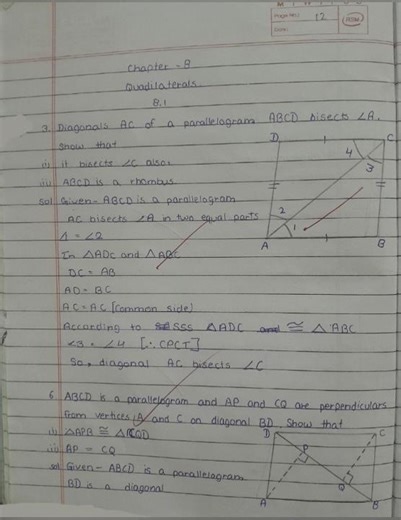 Page No.: 12
Date:
Chapter - 8
Quadrilaterals.
8.1
3. Diagonals AC of a parallelogram ABCD bisects ∠A.
Show that
(i) it bisects ∠C also.
(ii) ABCD is a rhombus.
sol Given- ABCD is a parallelogram
AC bisects ∠A in two equal parts
∠1 = ∠2
In △ADC and △ABC
DC = AB
AD = BC
AC = AC [common side)
According to SSS △ADC ≅ △ABC
∠3 = ∠4 [∴ CPCT]
So, diagonal AC bisects ∠C
D
C
4
3
2
1
A
B
6 ABCD is a parallelogram and AP and CQ are perpendiculars
from vertices A and C on diagonal BD. Show that
(i) △APB ≅ △CQD
(ii) AP = CQ
sol Given- ABCD is a parallelogram.
BD is a diagonal
D
C
P
Q
A
B